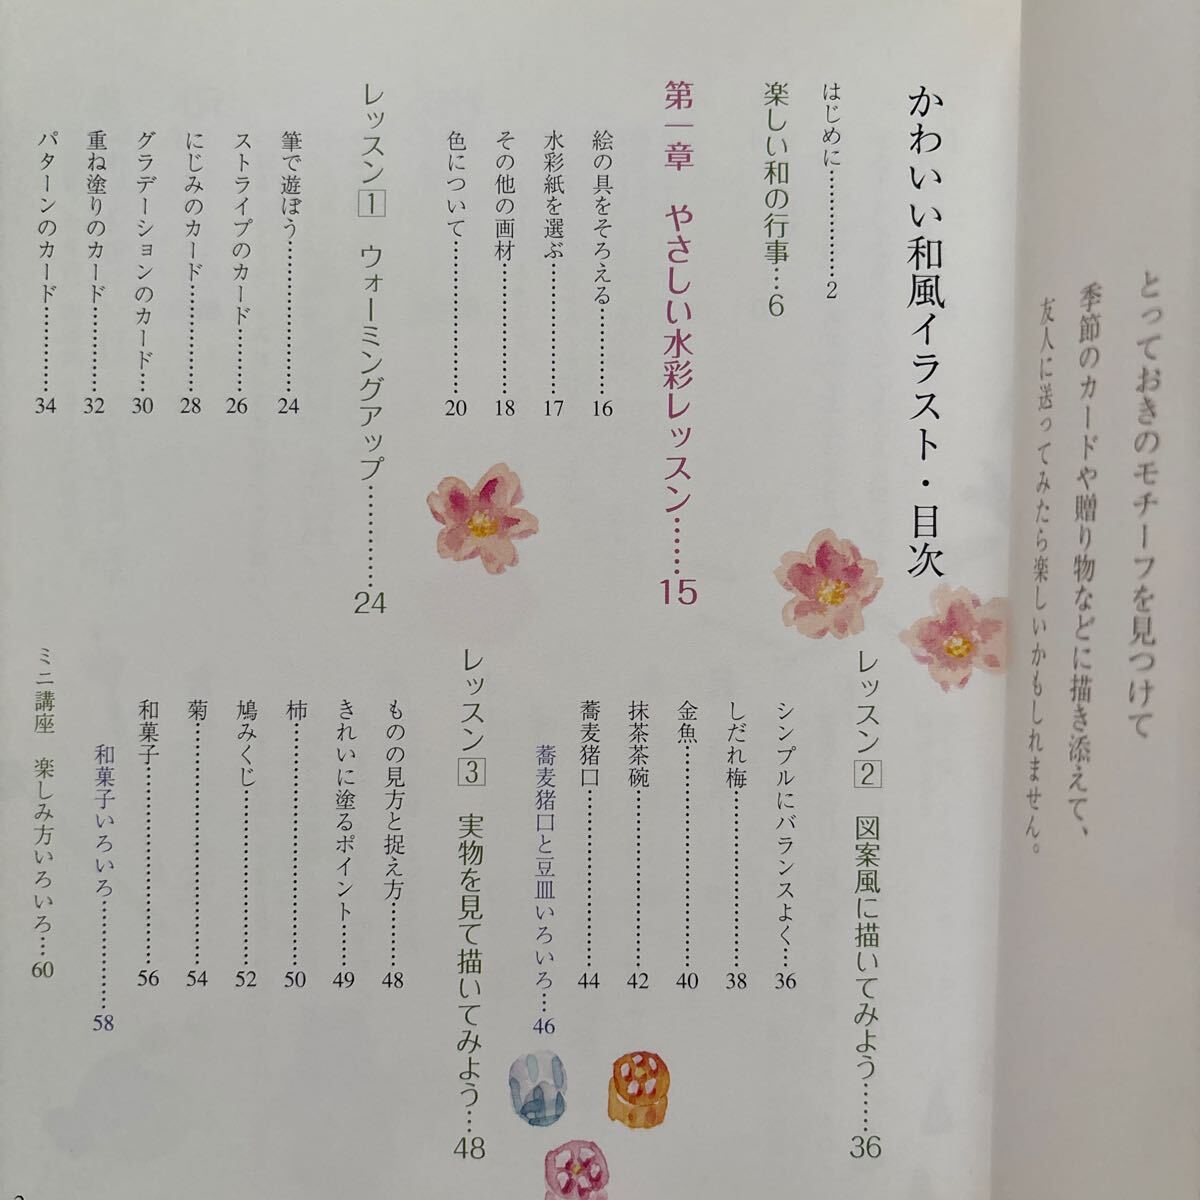 とっておきのモチーフを見つけて
季節のカードや贈り物などに描き添えて、
友人に送ってみたら楽しいかもしれません。
かわいい和風イラスト・目次
はじめに…………2
楽しい和の行事…6
第一章 やさしい水彩レッスン……15
絵の具をそろえる…………16
水彩紙を選ぶ…………17
その他の画材…………18
色について…………20
レッスン1 ウォーミングアップ…………24
筆で遊ぼう…………24
ストライプのカード…………26
にじみのカード…………28
グラデーションのカード…30
重ね塗りのカード…………32
パターンのカード…………34
レッスン2 図案風に描いてみよう……36
シンプルにバランスよく…36
しだれ梅…………38
金魚…………40
抹茶茶碗…………42
蕎麦猪口…………44
蕎麦猪口と豆皿いろいろ…46
レッスン3 実物を見て描いてみよう…48
ものの見方と捉え方……48
きれいに塗るポイント……49
柿…………50
鳩みくじ…………52
菊…………54
和菓子…………56
和菓子いろいろ…………58
ミニ講座 楽しみ方いろいろ…60